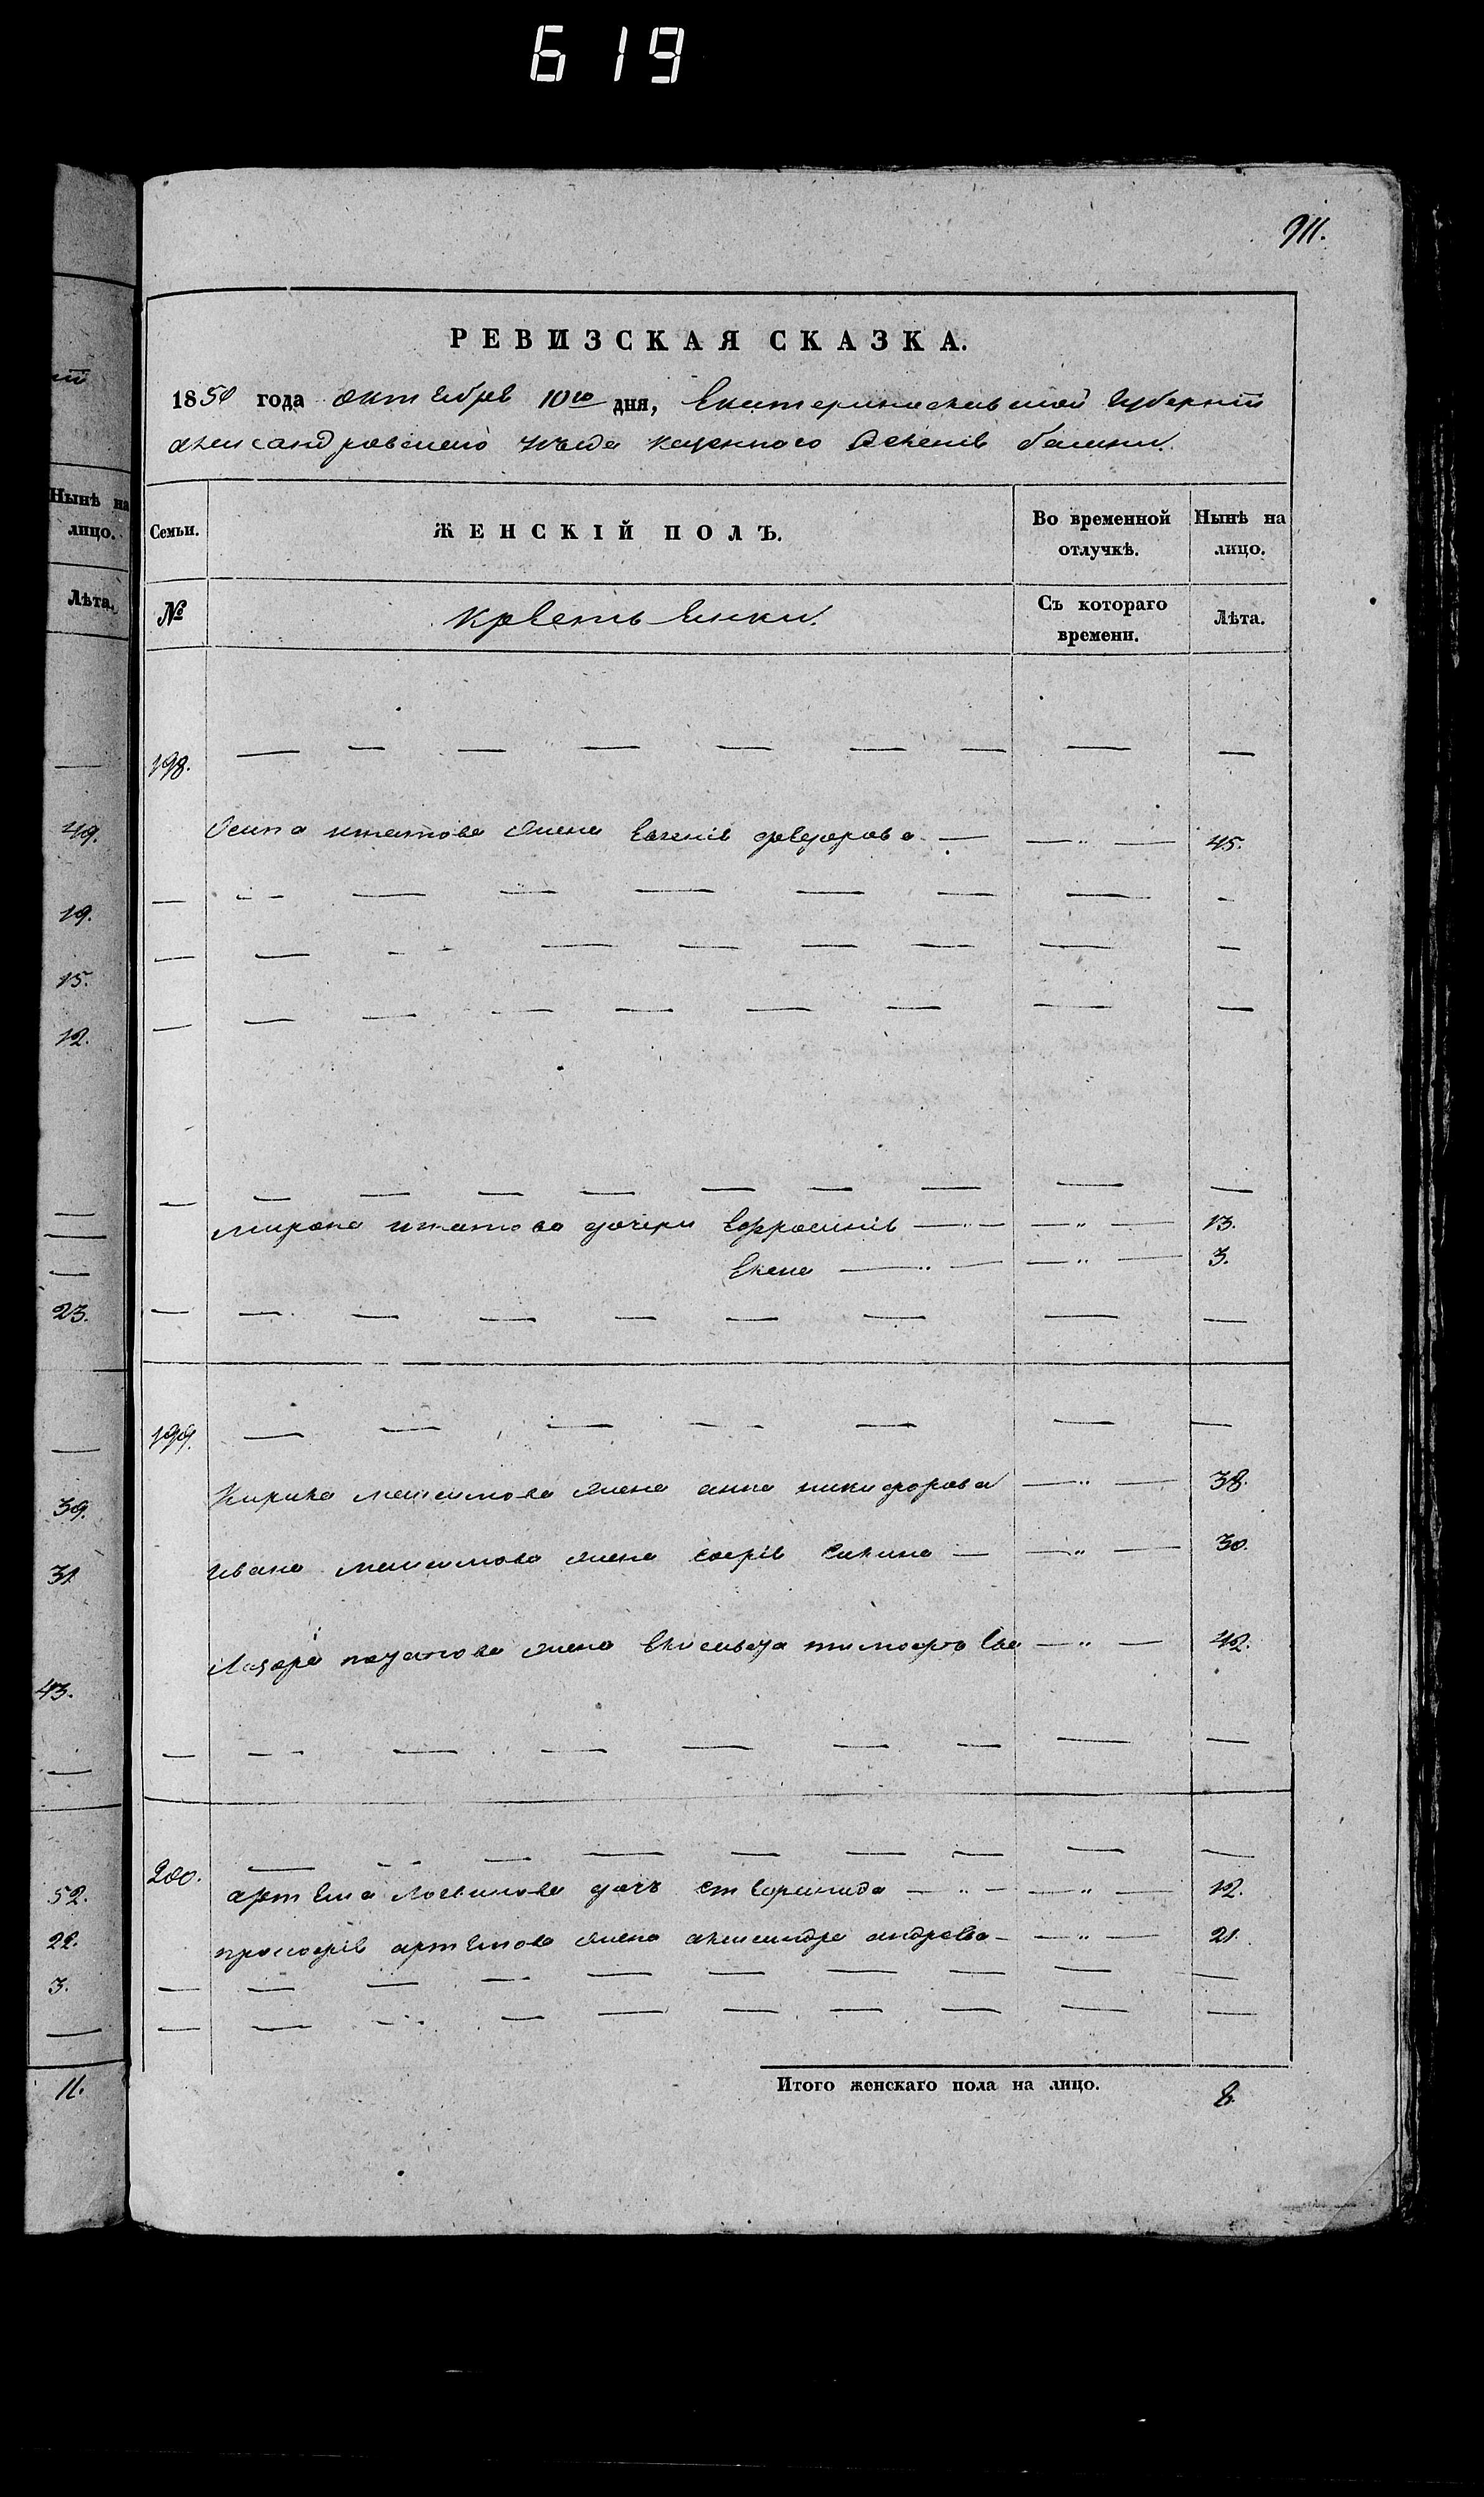 619
911.
РЕВИЗСКАЯ СКАЗКА.
1850 года октября 10го дня, Екатеринославской Губерніи
Александровского уезда казенного селенія балки.
Нынѣ на
лицо.
Лѣта.
Семьи.
ЖЕНСКІЙ ПОЛЪ.
Во временной
отлучкѣ.
Нынѣ на
лицо.
№
Крестьянки.
Съ котораго
времени.
Лѣта.
198.
Осипа игнатова жена Евгенія федорова — " — 45.
мирона игнатова дочери Ефросинія — " — 13.
Елена — " — 3.
199.
Кирила максимова жена анна никифорова — " — 38.
Ивана максимова жена софія — " — 30.
Лазаря потапова жена Елисавета тимофеева — " — 42.
200.
артема логвинова дочь степанида — " — 12.
прокофія артемова жена александра андреева — " — 21.
Итого женскаго пола на лицо. 8.
49.
19.
15.
12.
23.
39.
31
43.
52.
22.
3.
11.